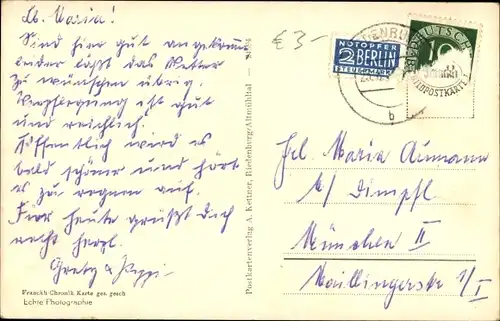 Lb. Maria!
Sind hier gut angekomm.
leider läßt das Wetter
zu wünschen übrig.
Verpflegung ist gut
und reichlich.
Hoffentlich wird es
bald schöner und hört
es zu regnen auf.
Für heute grüßt Dich
recht herzl.
Gretl & Peppi
Franckh-Chronik Karte ges. gesch
Echte Photographie
Postkartenverlag A. Kettner, Riedenberg/Altmühltal
€ 3-
NOTOPFER
2 BERLIN
STEUERMARKE
DEUTSCHE
10
b
Frl. Maria Aumann
b/ Dimpfl
München II
Maillingerstr 1/I